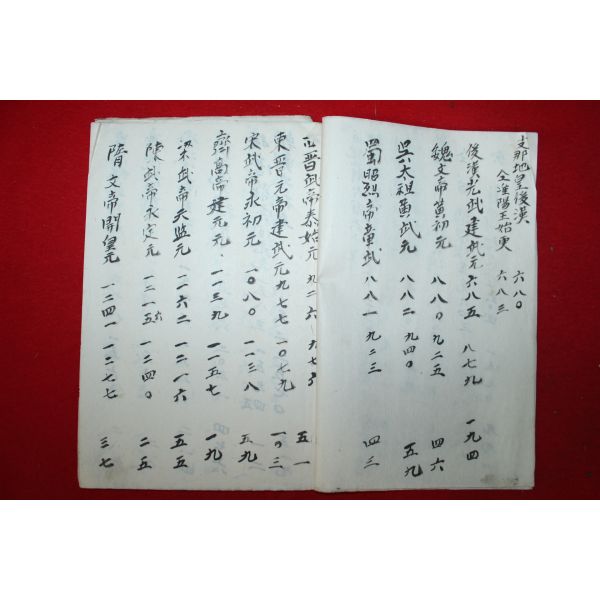 支那地皇後漢 六八〇
仝淮陽王始更 六八三
後漢光武建武元 六八五 八七九 一九四
魏文帝黄初元 八八〇 九二五 四六
呉大祖黄武元 八八二 九四〇 五九
蜀昭烈帝章武 八八一 九二三 四三
西晋武帝泰始元 九二六 九七六 五一
東晋元帝建武元 九七七 一〇七九 一〇三
宋武帝永初元 一〇八〇 一一三八 五九
齊高帝建元元 一一三九 一一五七 一九
梁武帝天監元 一一六二 一二一六 五五
陳武帝永定元 一二一五 六 一二四〇 二五
隋文帝開皇元 一二四一 一二七七 三七